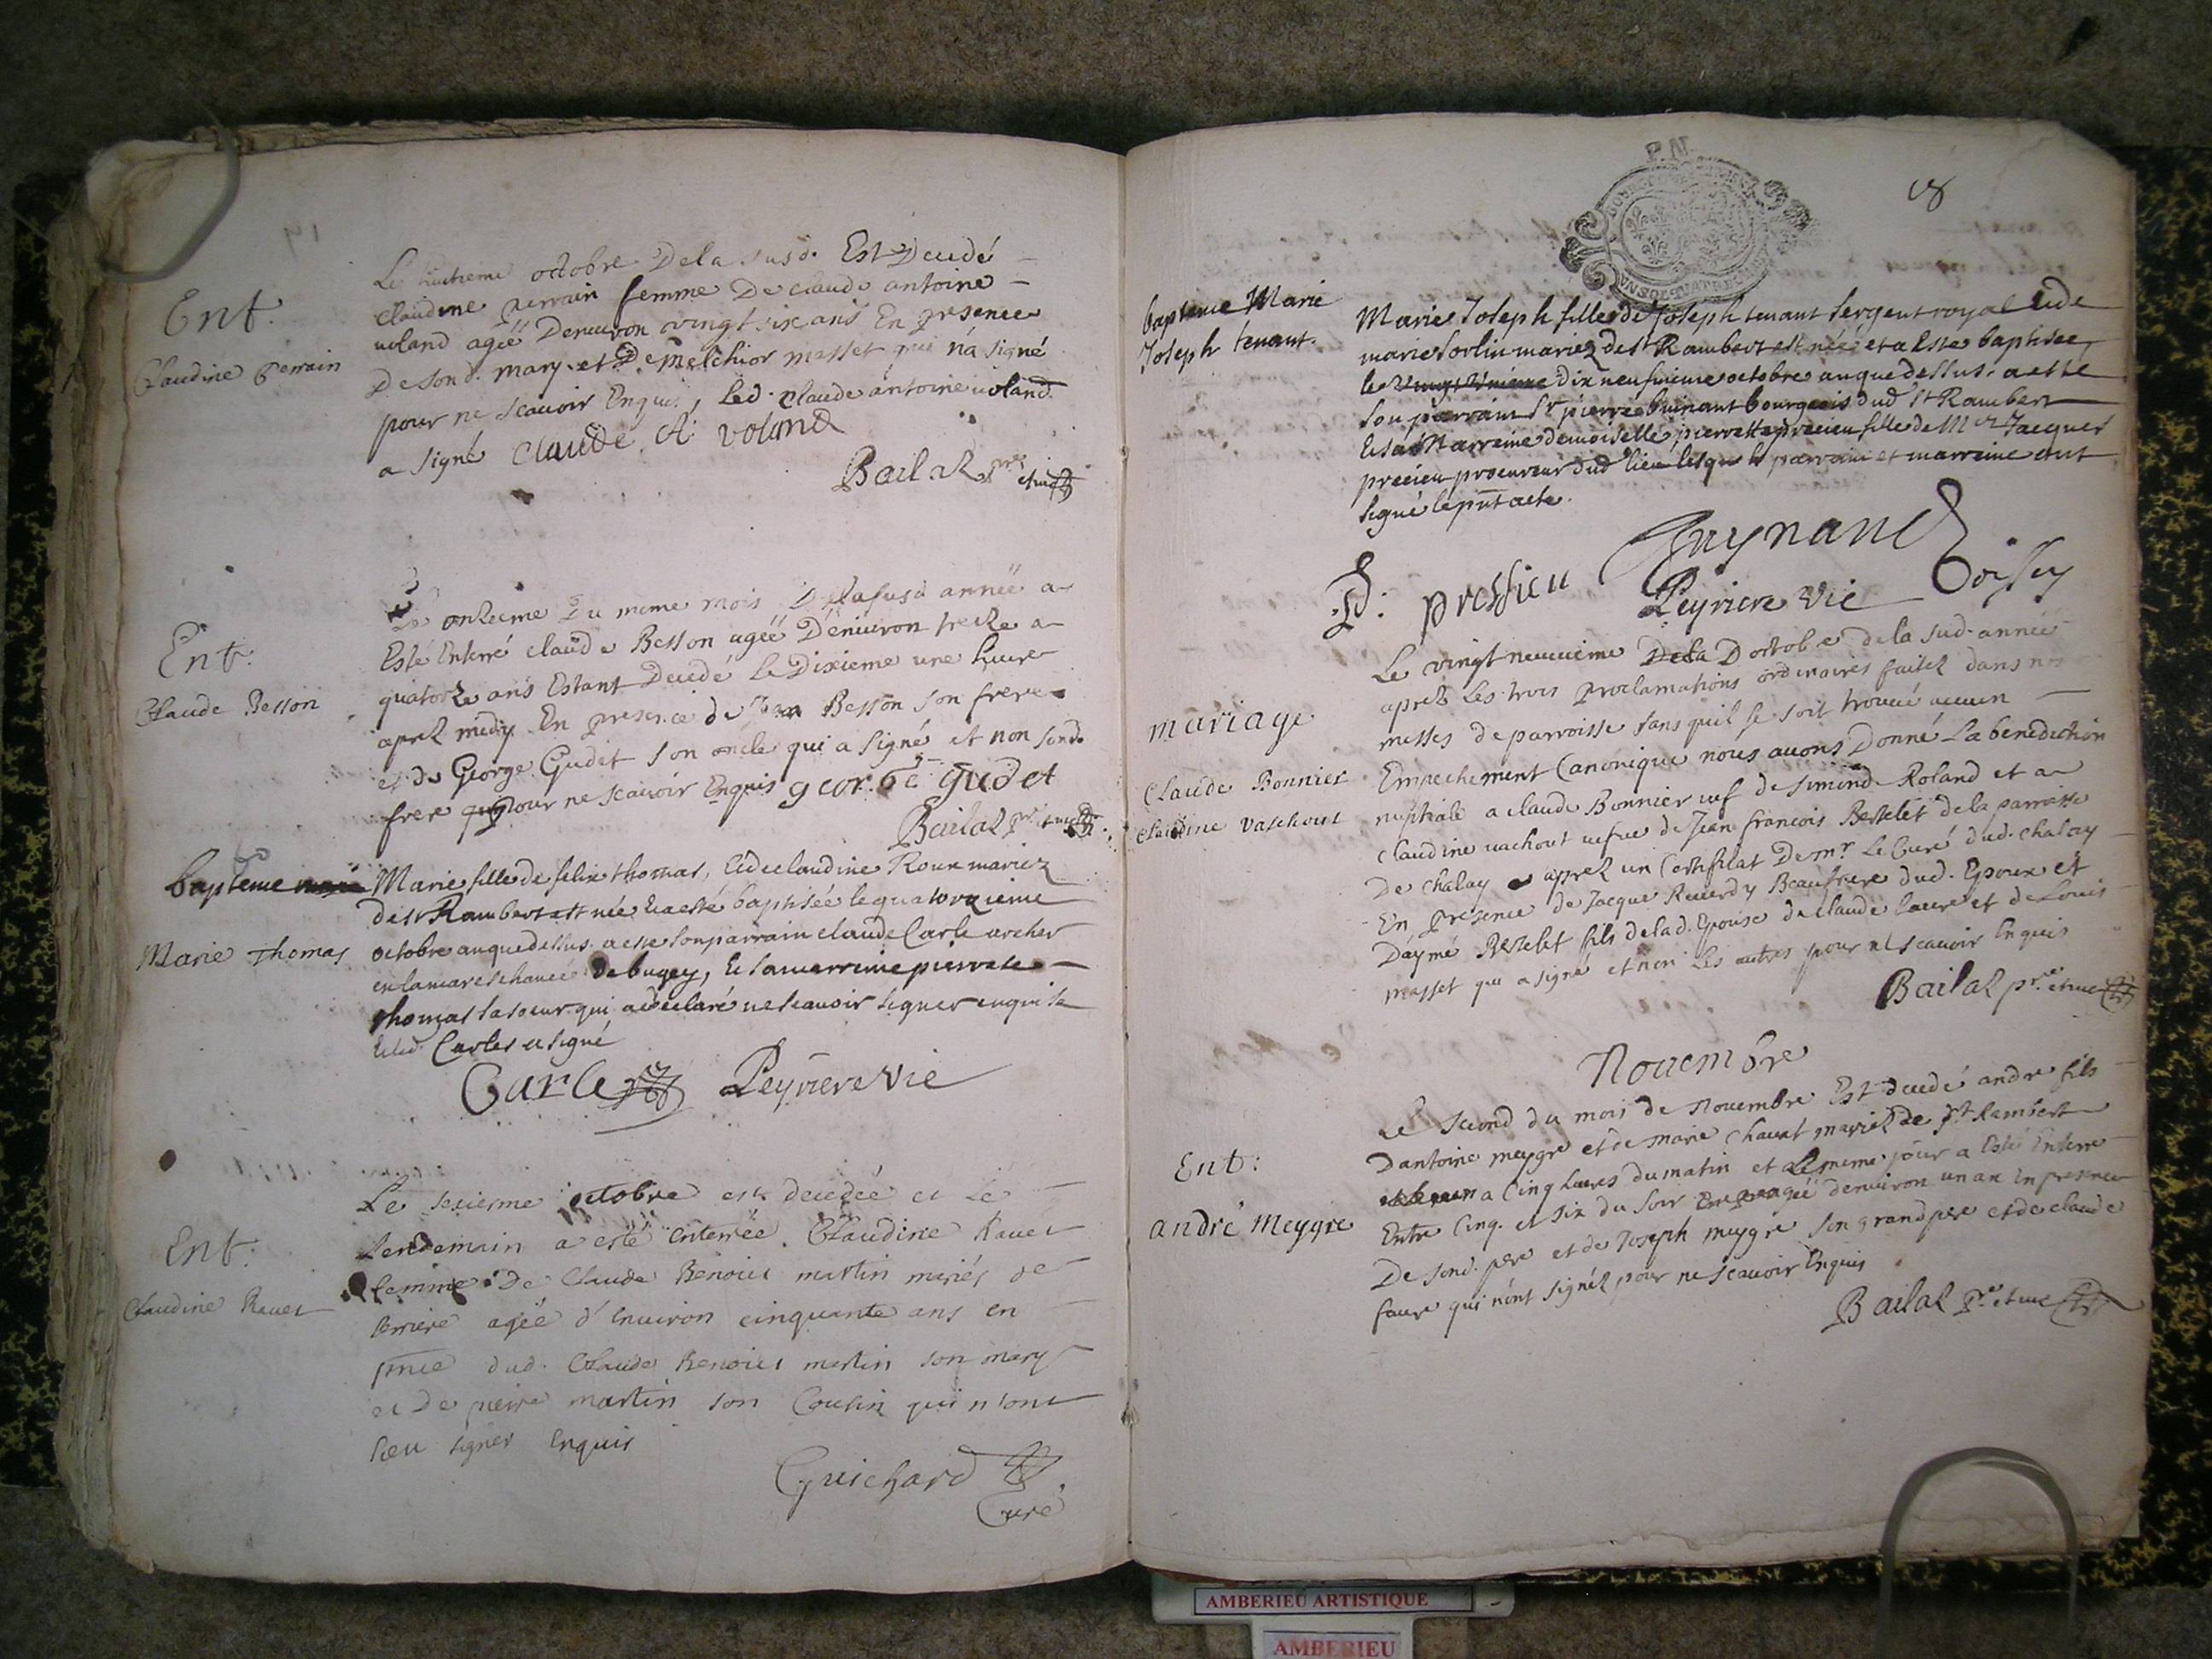 Ent.
Claudine Perrain
Le huitieme octobre De la susd. Est Decedé
claudine perrain femme De claude antoine
uoland agëe Denuiron vingt six ans En presence
De son d. mary et De Melchior masset qui n'a signé
pour ne scauoir Enquis, Led. claude antoine uoland
a signé Claude A. voland
Bailat pre et vic
Ent.
Claude Besson
Le onzieme Du meme mois De la susd année a
Esté Enterré claude Besson agëe D'enuiron treize a
quatorze ans Estant Decedé Le Dixieme une heure
aprez midy En presence de Jean Besson son frere
et de George Gudet son oncle qui a signé et non sond.
frere pour ne scauoir Enquis george gudet
Bailat pre et vic
bapteme
Marie Thomas
Marie fille de felix thomas, Et de claudine Roux mariez
de st Rambert est née Et a esté baptisée le quatorzieme
octobre an que dessus. a este son parrain claude Carle archer
en la mareschaucée de bugey, Et sa marreine pierrete
thomas sa soeur qui a declaré ne scauoir signer enquise
Et led. Carles a signé
Carle Peyriere vic
Ent.
Claudine Ravet
Le sexiesme octobre est decedée et le
lendemain a esté enterrée Claudine Ravet
femme De Claude Benoict martin mariés de
serriere agée d'enuiron cinquante ans en
pnce dud. Claude Benoict martin son mary
et De pierre martin son Cousin qui n'ont
sceu signer enquis
Guichard
Curé
18
bapteme Marie
Joseph tenant.
Marie Joseph fille de Joseph tenant sergent royal Et de
marie sorlin mariez de st Rambert est née et a Este baptisee
le vingt unieme dix neufuieme octobre an que dessus. a este
son parrain Sr pierre guinant bourgeois dud st Rambert
Et sa Marreine demoiselle pierrette precieu fille de Mre Jacques
precieu procureur dud lieu lesquels parrain et marreine ont
signé le pnt acte.
pressieu Guynand
Peyriere vic Boissy
mariage
Claude Bonnier
Claudine Vaschout
Le vingt neuuieme De la D'octobre de la sud. année
aprez Les trois proclamations ordinaires faitez dans nos
messes de parroisse sans quil se soit trouué aucun
Empechement Canonique nous auons Donné La benediction
nuptiale a claude Bonnier uef de simonde Roland et a
claudine uachout uefue de Jean francois Berzelet de la parroisse
De chalay aprez un Certifilat De mr Le Curé dud. chalay
En presence de Jacque Reuerdy Beaufrere dud. Epoux et
D'aymé Berzelet fils de lad. Epouse de claude faure et de Louis
masset qui a signé et non Les autres pour ne scauoir Enquis
Bailat pre et vic
Nouembre
Ent:
andré Meygre
Le second du mois de Nouembre Est decedé andre fils
D'antoine meygre et de marie chauet mariez de st Rambert
a Cinq heures du matin et Le meme jour a Esté Enterre
Entre Cinq et six du soir agée denuiron un an En presence
De sond. pere et de Joseph meygre son grand pere et de claude
faure qui n'ont signéz pour ne scauoir Enquis
Bailat pre et vic
AMBERIEU ARTISTIQUE
AMBERIEU